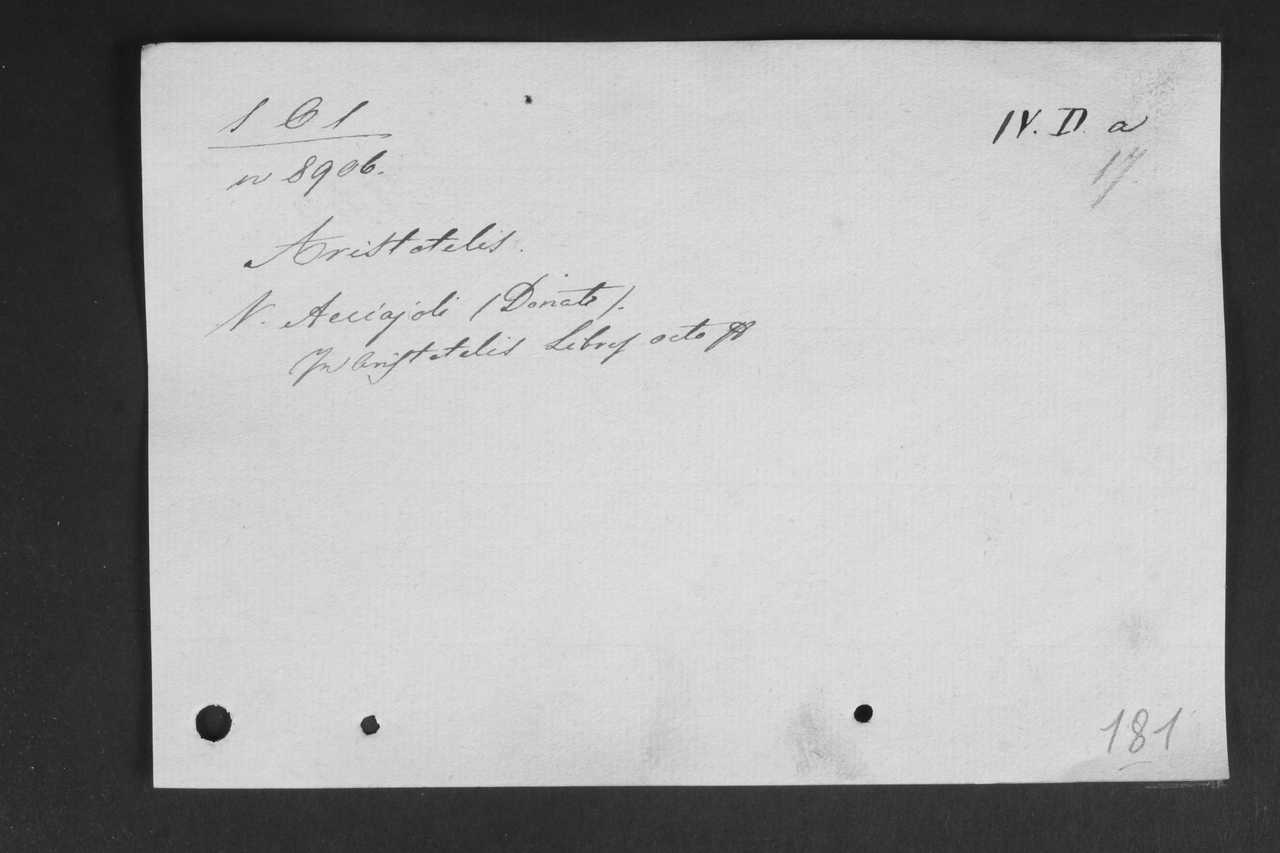 1 C 1
n 8906.
IV. D. a
17.
Aristotelis.
V. Acciajoli (Donato).
In Aristotelis Libros octo
181